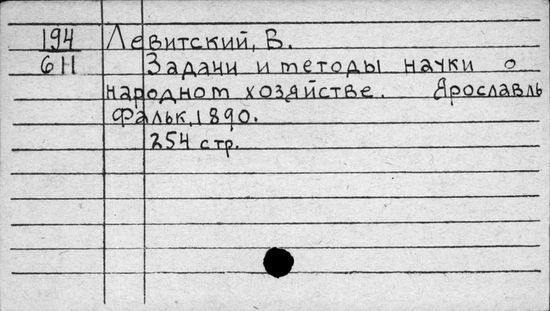 194 Левитский, В.
611 Задачи и методы науки о
народном хозяйстве. Ярославль
Фальк, 1890.
254 стр.